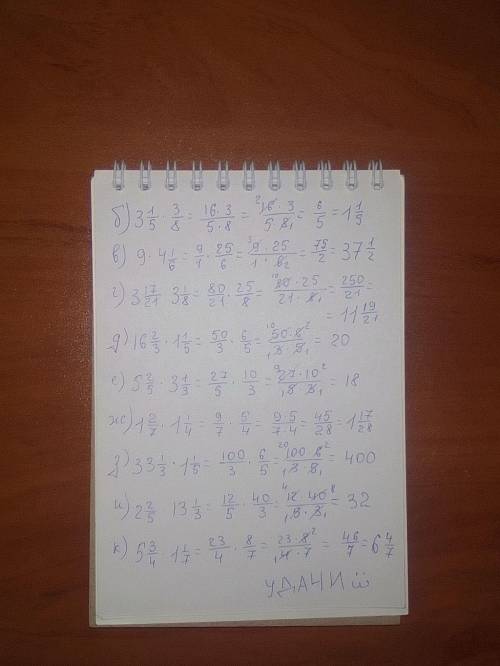 б) 3 1/5 · 3/8 = 16·3/5·8 = 2 16·3/5·8 1 = 6/5 = 1 1/5
в) 9 · 4 1/6 = 9/1 · 25/6 = 3 9·25/1·6 2 = 75/2 = 37 1/2
г) 3 17/21 3 1/8 = 80/21 · 25/8 = 10 80·25/21·8 1 = 250/21 =
= 11 19/21
д) 16 2/3 · 1 1/5 = 50/3 · 6/5 = 10 50·6 2/1 3·5 1 = 20
е) 5 2/5 · 3 1/3 = 27/5 · 10/3 = 9 27·10 2/1 5·3 1 = 18
ж) 1 2/7 · 1 1/4 = 9/7 · 5/4 = 9·5/7·4 = 45/28 = 1 17/28
з) 33 1/3 · 1 1/5 = 100/3 · 6/5 = 20 100·6 2/1 3·5 1 = 400
и) 2 2/5 13 1/3 = 12/5 · 40/3 = 4 12·40 8/1 5·3 1 = 32
к) 5 3/4 1 1/7 = 23/4 · 8/7 = 23·8 2/1 4·7 = 46/7 = 6 4/7
УДАЧИ